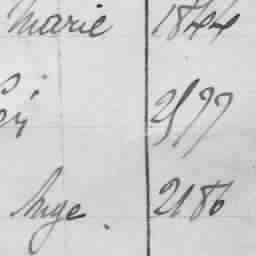 Marie 1844
2577
Ange. 2186